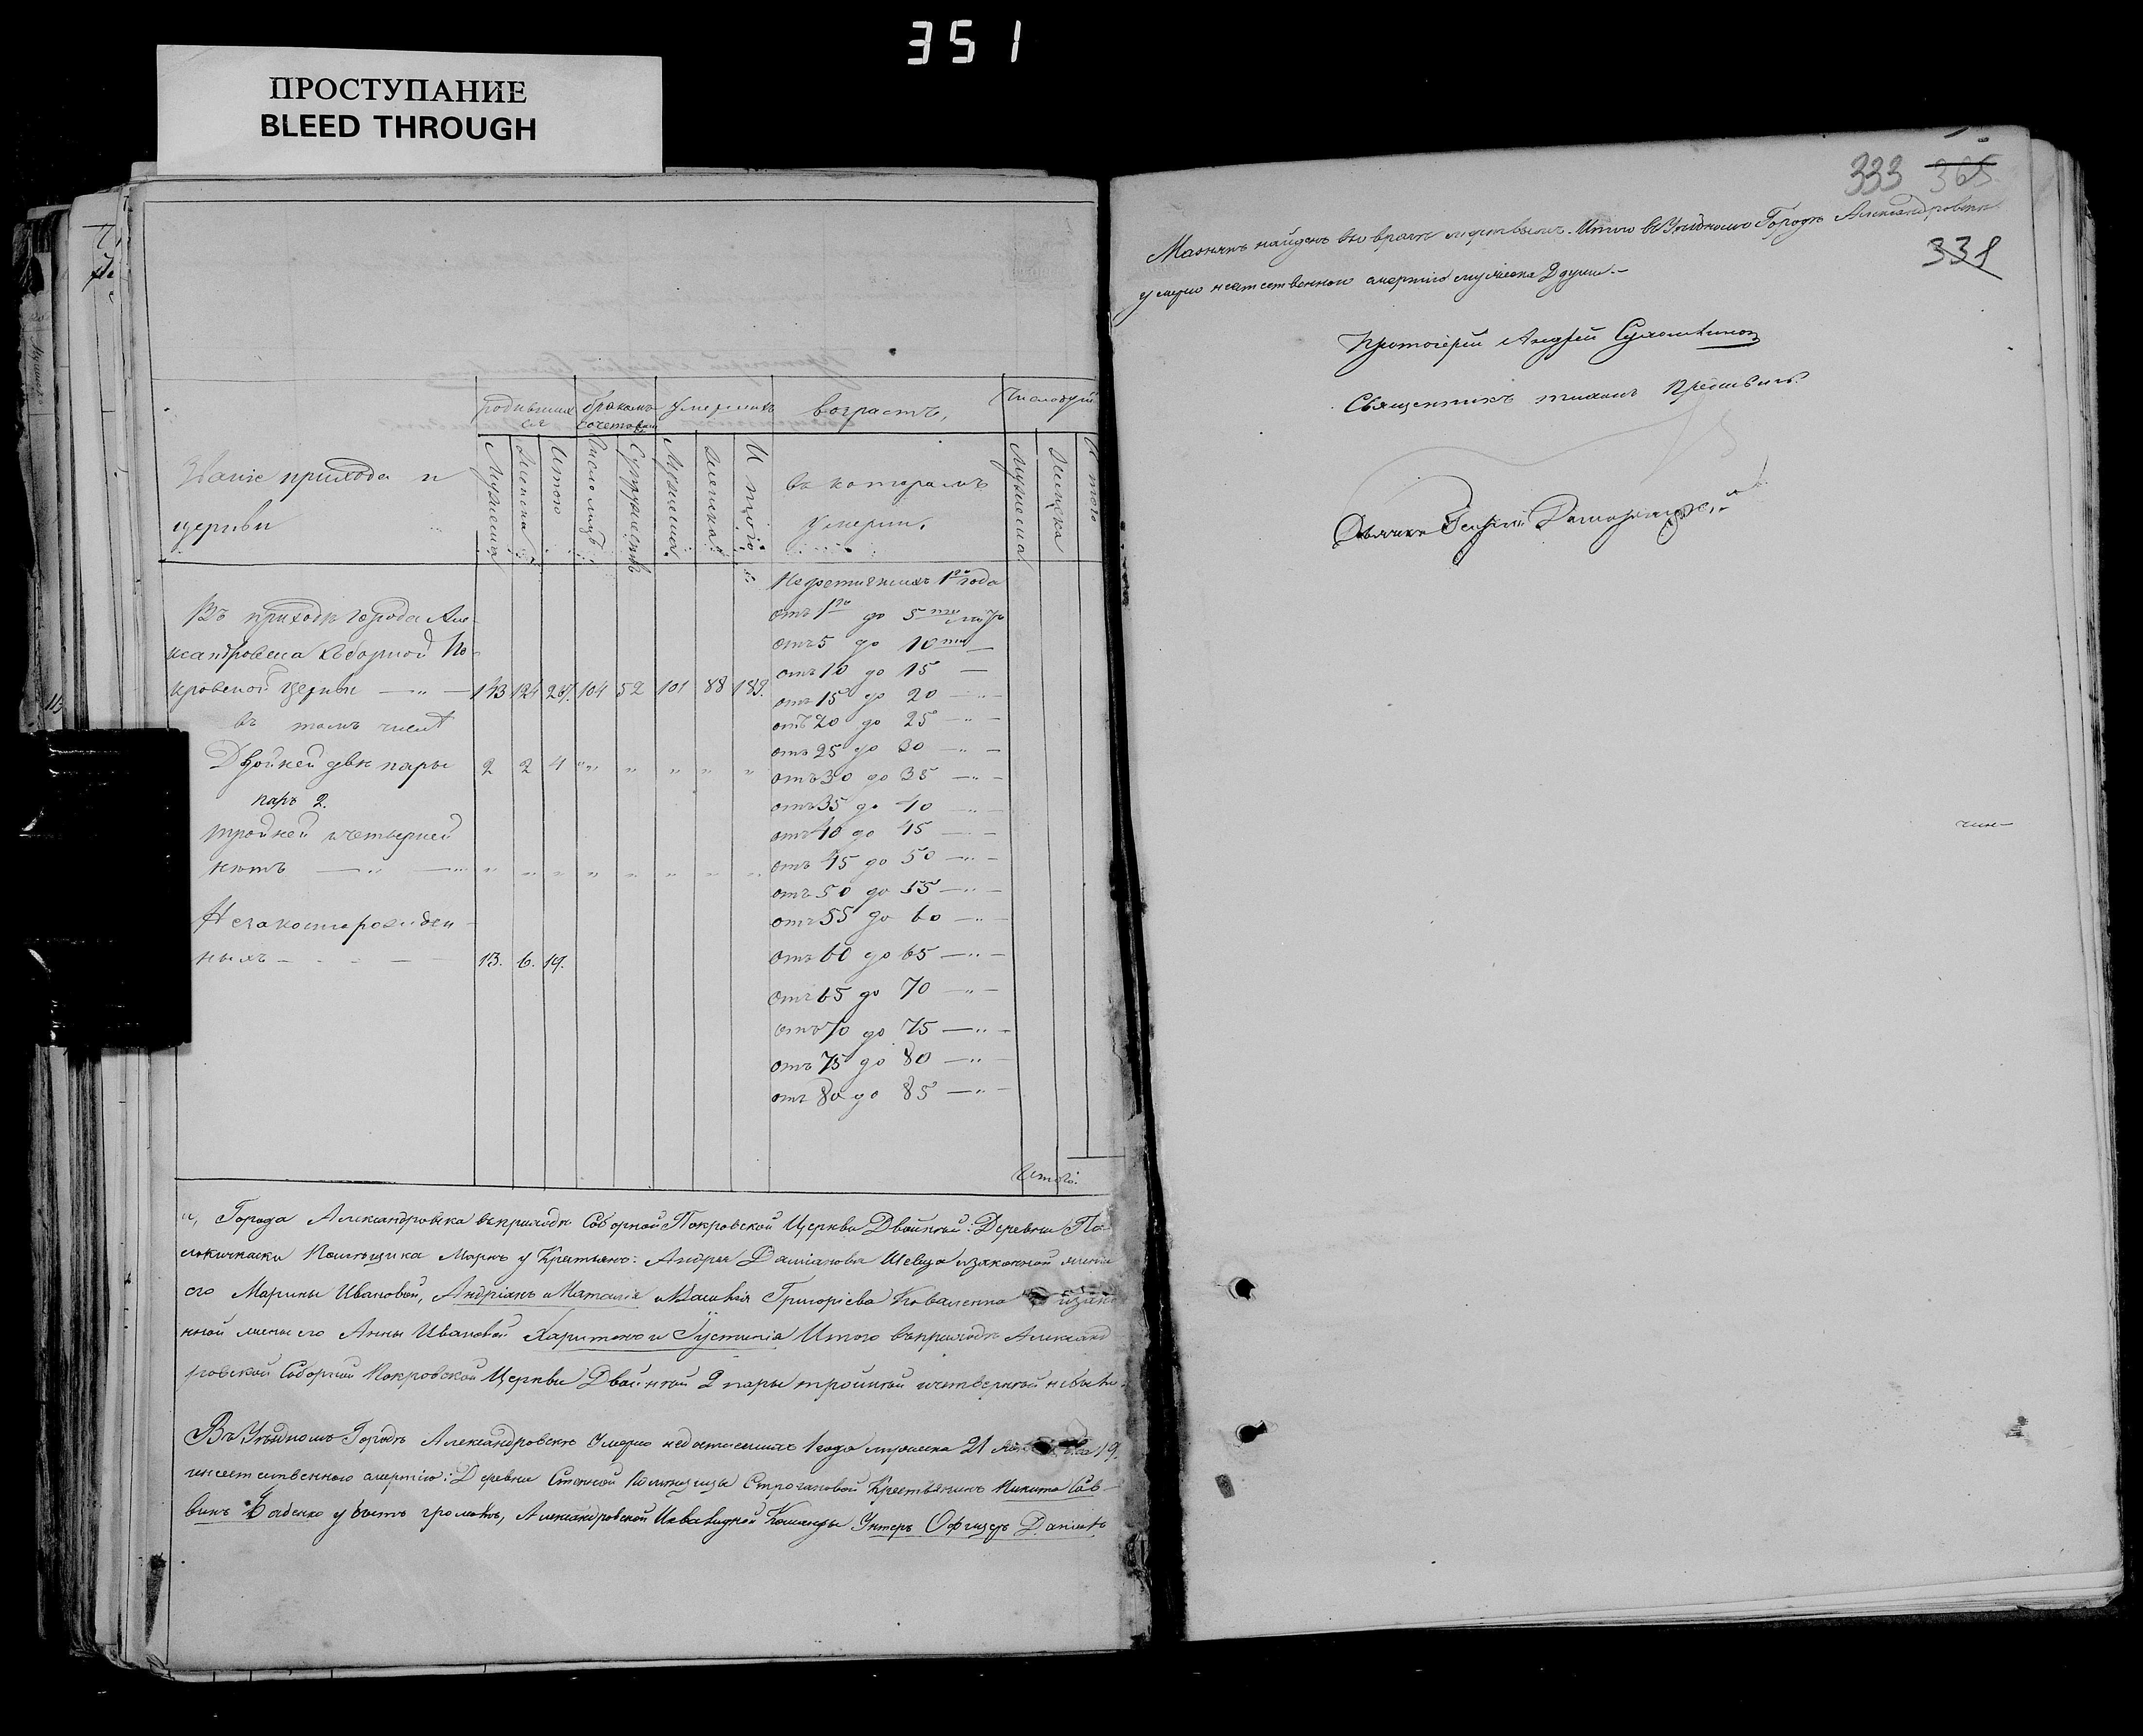 351
ПРОСТУПАНИЕ
BLEED THROUGH
333 365
338
родившихся бракомъ сочетов. умершихъ возрастъ, Число душ
Мужеска Женска Итого Число лицъ Супружествъ Мужеска Женска Итого въ которомъ умерли. Мужеска Женска Итого
Званіе прихода и
церкви
Недостигшихъ 1го года
Въ приходѣ города Але-
ксандровска Соборной По-
кровской Церкви — „ — 143 124 267. 104 52 101 88 189.
въ томъ числѣ
Двойней двѣ пары 2 2 4 „ „ „ „ „ „
паръ 2.
тройней и четверней
нѣтъ — „ — „ „ „ „ „ „ „ „
Незаконнорожден-
ныхъ — — — 13. 6. 19.
отъ 1го до 5ти
отъ 5 до 10ти —
отъ 10 до 15 —
отъ 15 до 20 — „ —
отъ 20 до 25 — „ —
отъ 25 до 30 — „ —
отъ 30 до 35 — „ —
отъ 35 до 40 — „ —
отъ 40 до 45 — „ —
отъ 45 до 50 — „ —
отъ 50 до 55 — „ —
отъ 55 до 60 — „ —
отъ 60 до 65 — „ —
отъ 65 до 70 — „ —
отъ 70 до 75 — „ —
отъ 75 до 80 — „ —
отъ 80 до 85 — „ —
Итого:
Города Александровска въ приходѣ Соборной Покровской Церкви Двойней: Деревни
Помѣщика Маркъ у Крестьянъ: Андрея Даміанова Шевца и законной жены
его Марины Ивановой, Андріянъ и Наталія и Василія Григорієва Коваленка и закон
ной жены его Анны Ивановой Харитонъ и Іустинія Итого въ приходѣ Александ
ровской Соборной Покровской Церкви Двойней 2 пары тройней и четверней небыло.
Въ Уѣздномъ Городѣ Александровскѣ Умерло недостигшихъ 1 года мужеска 21 19.
неестественною смертію: Деревни Степной Помѣщицы Строгановой Крестьянинъ Никита Сав-
винъ Бабенко убитъ громомъ, Александровской Инвалидной Команды Унтеръ Офицеръ Даніилъ
найденъ во мертвымъ. Итого въ Уѣздномъ Городѣ Александровскѣ
умерло неестественною смертію мужеска 2 души.—
Протоіерей Андрей
Священникъ
Дьячекъ